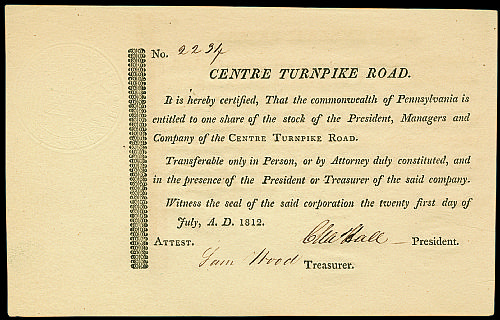 No. 2234
CENTRE TURNPIKE ROAD.
It is hereby certified, That the commonwealth of Pennsylvania is
entitled to one share of the stock of the President, Managers and
Company of the CENTRE TURNPIKE ROAD.
Transferable only in Person, or by Attorney duly constituted, and
in the presence of the President or Treasurer of the said company.
Witness the seal of the said corporation the twenty first day of
July, A. D. 1812.
ATTEST. Hall President.
Sam Wood Treasurer.